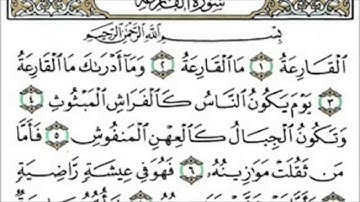 سورة القارعة
بسم الله الرحمن الرحيم
القارعة ١ ما القارعة ٢ وما أدرىك ما القارعة
٣ يوم يكون الناس كالفراش المبثوث ٤
وتكون الجبال كالعهن المنفوش ٥ فأما
من ثقلت موزينه ٦ فهو في عيشة راضية